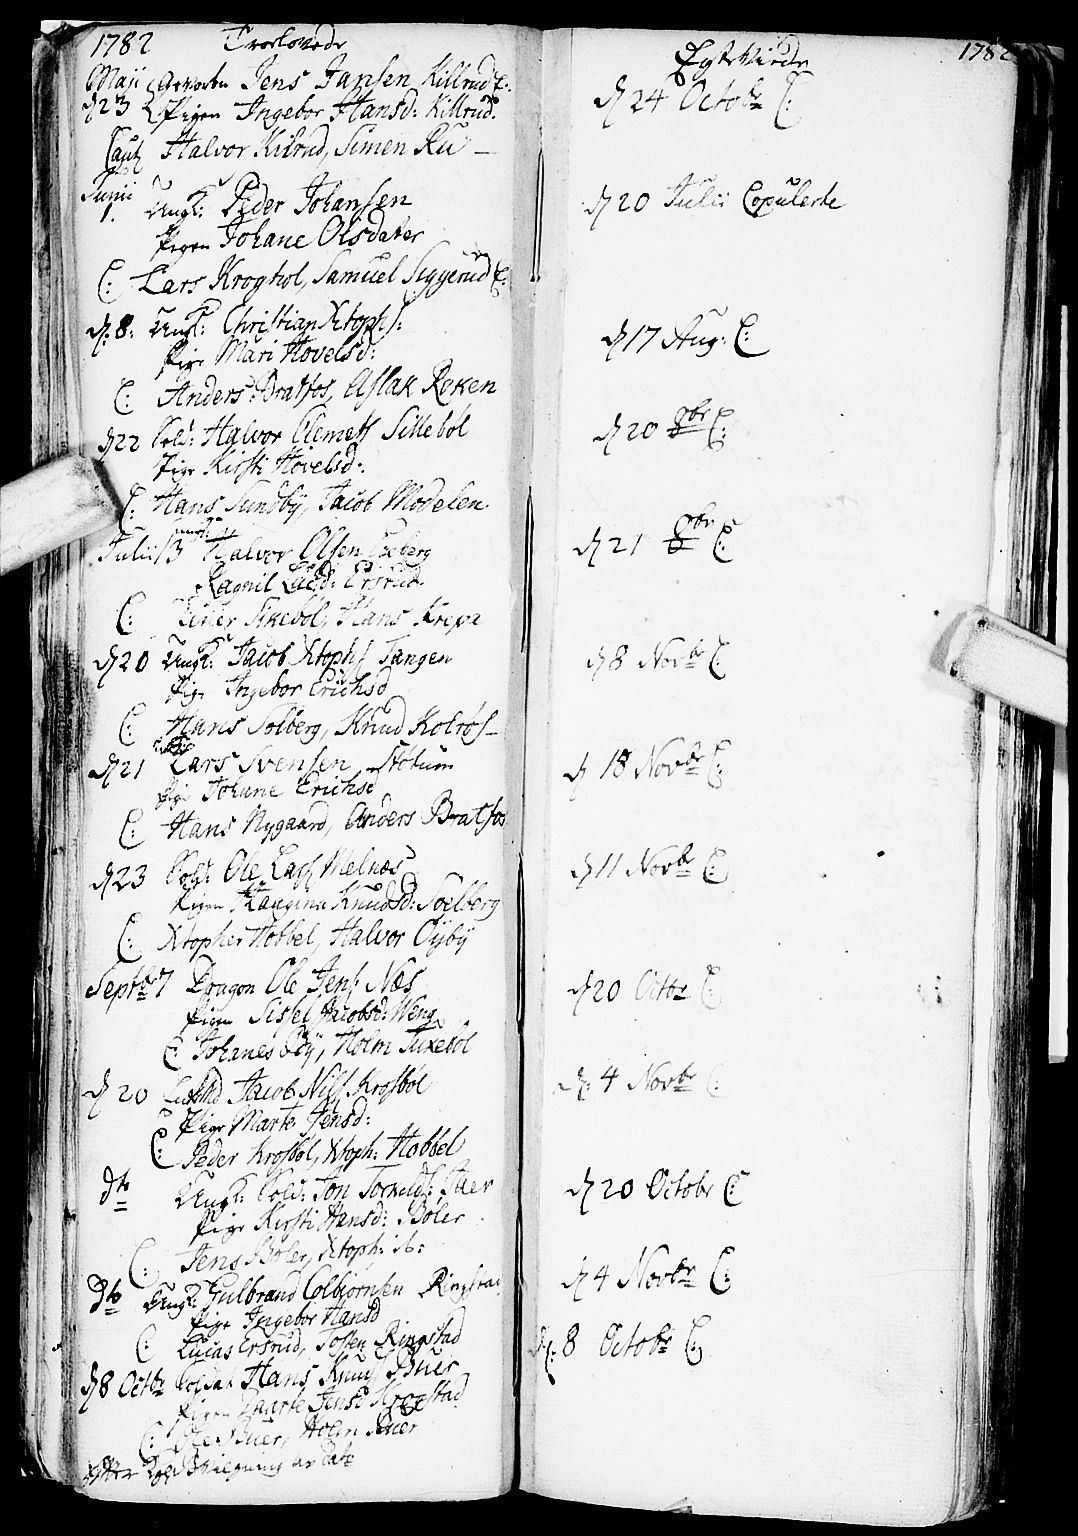 1782 Troelovede
Maji Jens Jansen Killrud C:
d 23 Pigen Ingebor Hansd: Killrud.
Caut Halvor Kilrud, Simen Ru
Junii
1. Ungk: Peder Johansen
Pigen Johane Olsdater
C: Lars Kroghol, Samuel Siggerud C:
d: 8: Ungk: Christian Xtophs:
Pige Mari Hovelsd:
C: Anders Bratfos, Aslak Roken
d 22 Sold: Halvor Clemets Sillebøl
Pige Kirsti Hovelsd:
C: Hans Sundby, Jacob Modelen
Julii 13 Halvor Olsen Exeberg
Ragnil Ersrud
C: Sikebøl, Hans Krepa
d 20 Ungk: Jacob Xtophs Tangen
Pige Ingebor Erichsd
C: Hans Solberg, Knud Kolrøs
d 21 Lars Svensen Støtum
Pige Johane Erichsd
C: Hans Nygaard, Anders Bratfos
d 23 Sold: Ole Lars Melnæs
Pigen Raugina Knudsd: Soelberg
C: Xtopher Hobbel, Halvor Oÿbÿ
Septbr 7 Dragon Ole Jens: Næs
Pigen Sissel Jacobsd: Weng
C: Johanes Bÿ, Holm Tuxebøl
d 20 Jacob Nils Krosbøl
Pige Marte Jensd:
C: Peder Krosbøl, Xtoph: Hobbel
dto Ungk: Sold: Jon
Pige Kirsti Hansd: Bøler
C: Jens Bøler, Xtoph: ib:
dto Ungk: Gulbrand Colbiørnsen Ringstad
Pige Ingebor Hansd
C: Lucas Ersrud, Tosten Ringstad
d 8 Octbr Soldat Hans Knuds Buer
Pigen Marte Jensd Krogstad
C: Ole Buer, Holm Buer
efter Bevilgning av Dato
Egteviede 1782
d 24 Octobr C:
d 20 Julii Copulerte
d 17 Aug: C:
d 20 8br C:
d 21 8br C:
d 8 Novbr C:
d 18 Novbr C:
d 11 Novbr C:
d 20 Octbr C:
d: 4 Novbr C:
d 20 Octobr C:
d 4 Novbr C:
d: 8 Octobr C: